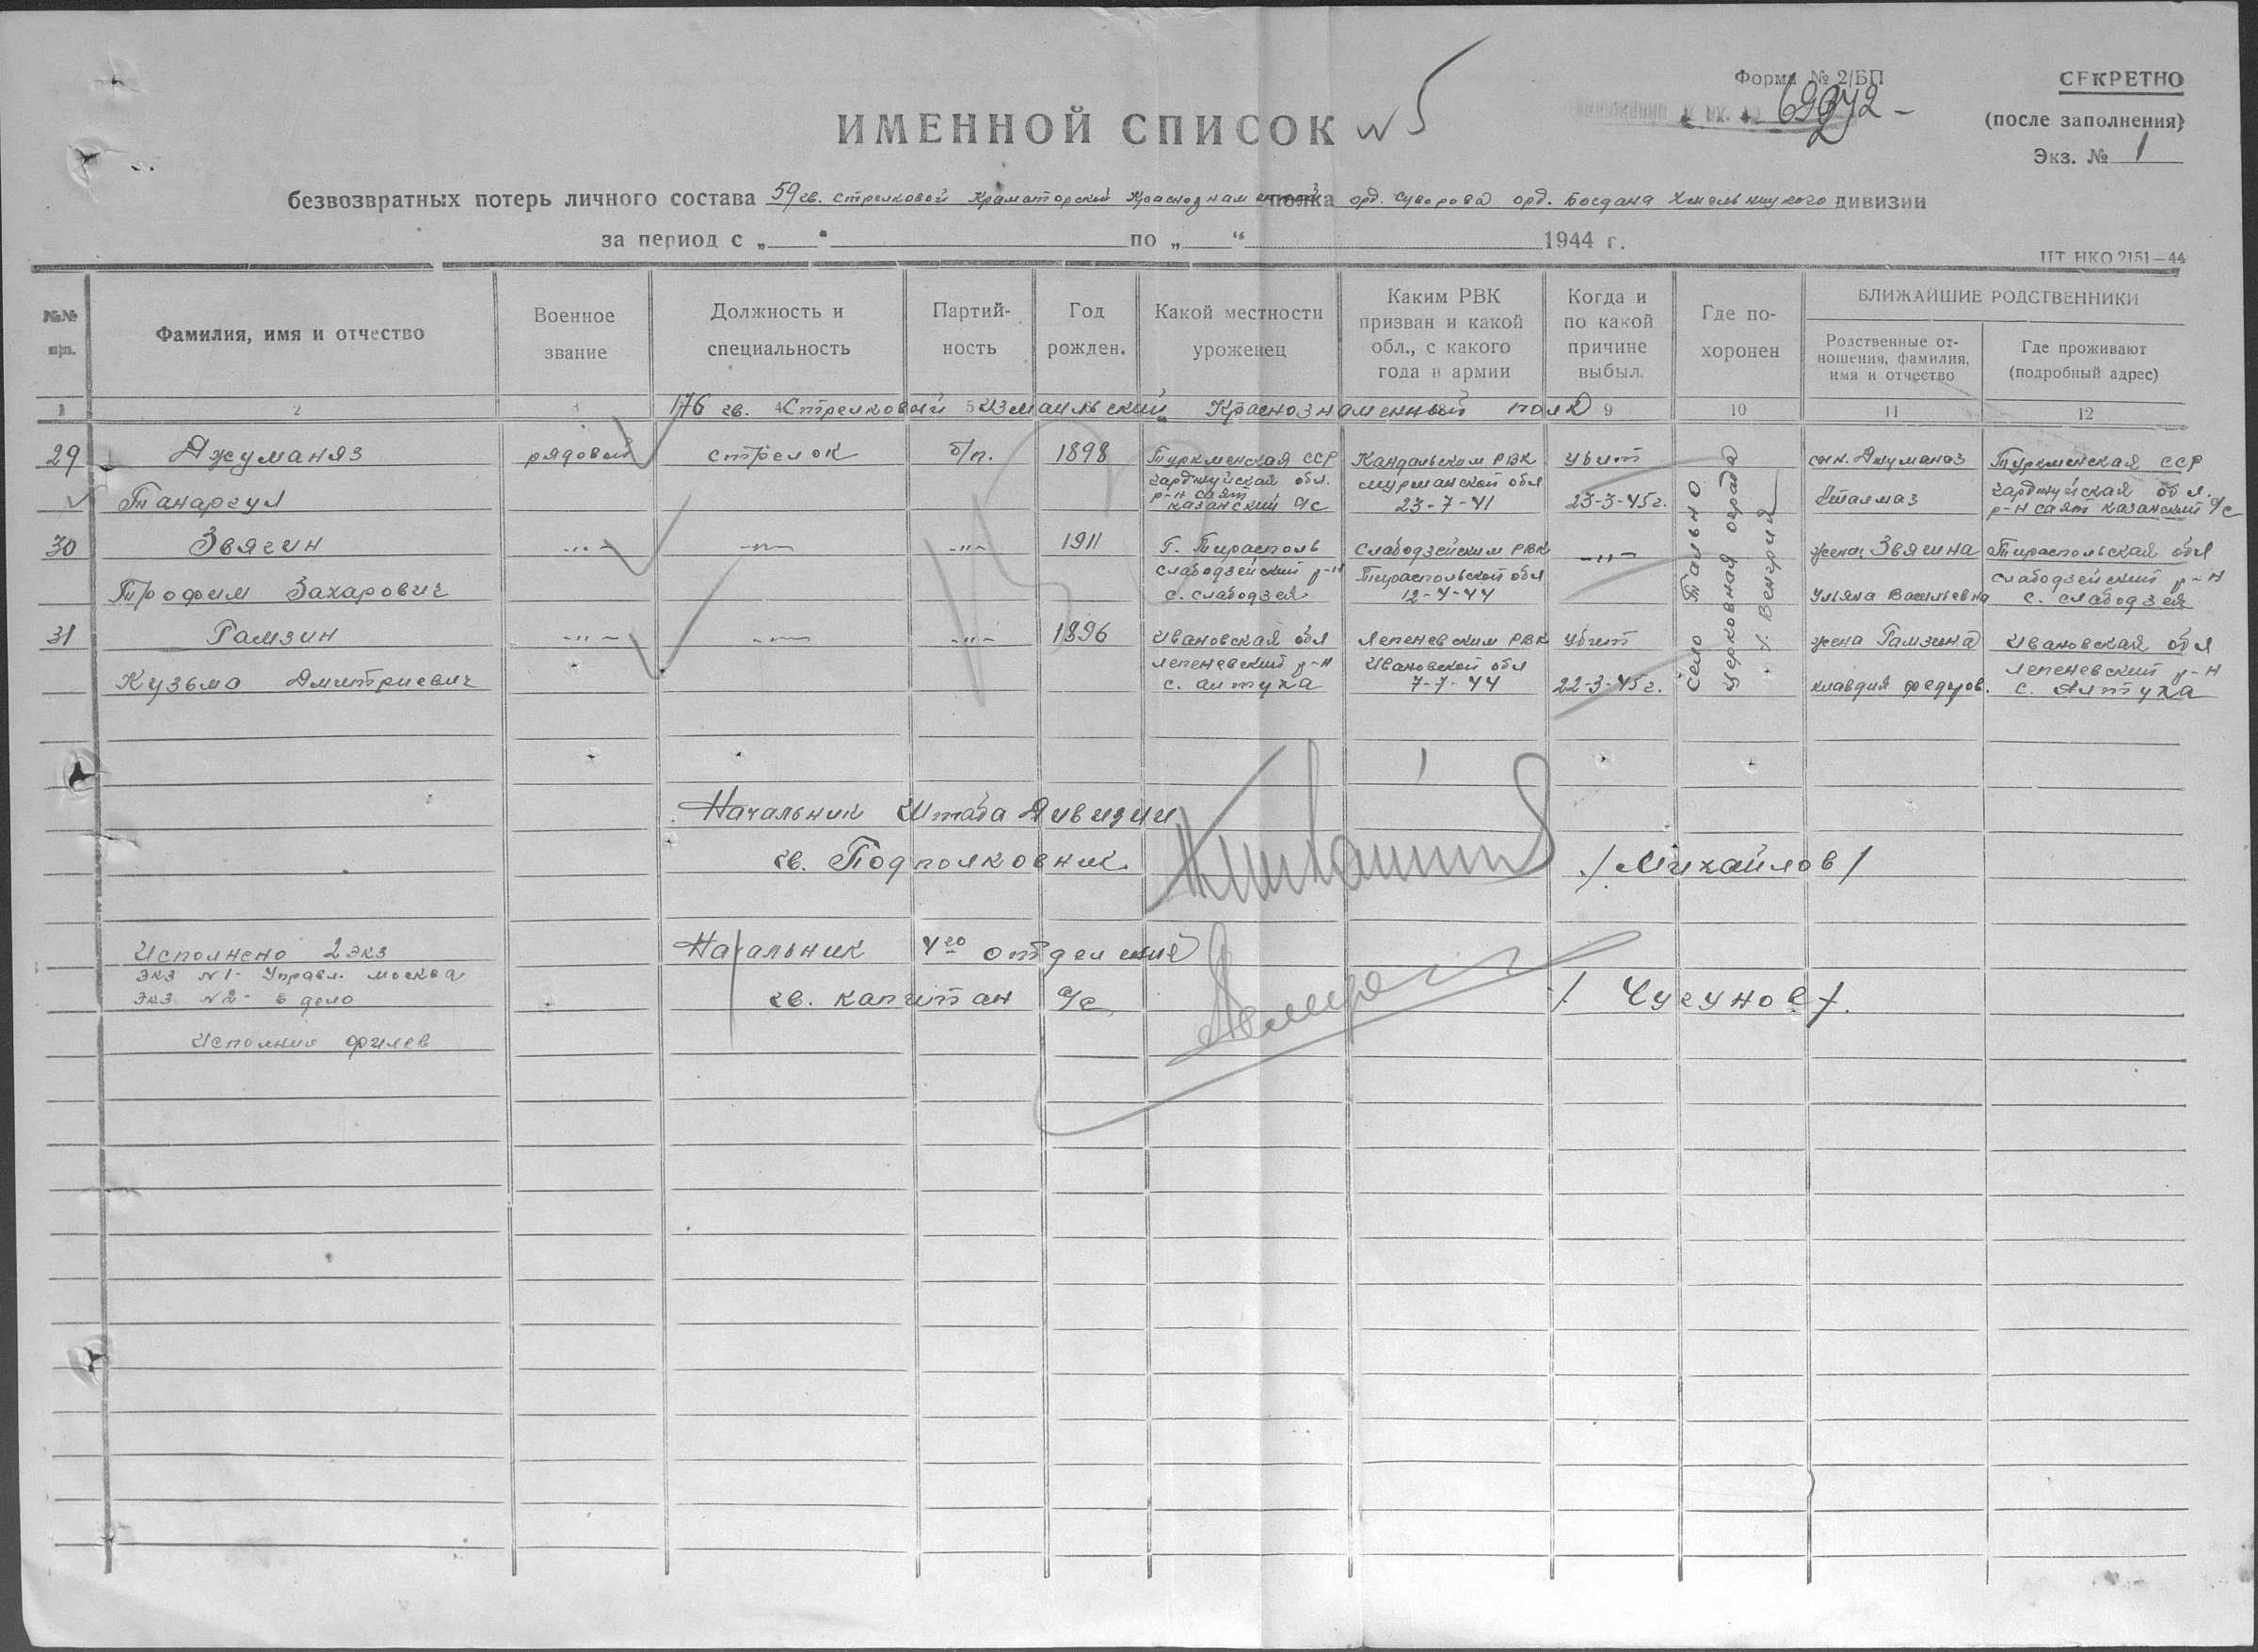 Форма № 2/БП
СЕКРЕТНО
69242
(после заполнения)
Экз. № 1
ИМЕННОЙ СПИСОК № 5
безвозвратных потерь личного состава 59 гв. стрелковой Краматорской Краснознаменной полка орд. Суворова орд. Богдана Хмельницкого дивизии
за период с „ “ по „ “ 1944 г.
ЦТ НКО 2151—44
№№ п/п.
Фамилия, имя и отчество
Военное звание
Должность и специальность
Партийность
Год рожден.
Какой местности уроженец
Каким РВК призван и какой обл., с какого года в армии
Когда и по какой причине выбыл.
Где похоронен
БЛИЖАЙШИЕ РОДСТВЕННИКИ
Родственные отношения, фамилия, имя и отчество
Где проживают (подробный адрес)
1 2 3 4 5 9 10 11 12
176 гв. Стрелковый Измаильский Краснознаменный полк
29 Джуманяз рядовой стрелок б/п. 1898 Туркменская ССР Кандальским РВК убит сын. Джуманаз Туркменская ССР
чарджуйская обл. Мурманской обл чарджуйская обл.
Танаргул р-н саят казанский с/с 23-7-41 23-3-45г. р-н саят казанский с/с
30 Звягин -"- -"- -"- 1911 г. Тирасполь Слабодзейским РВК -"- жена. Звягина Тираспольская обл
слабодзейский р-н Тираспольской обл слабодзейский р-н
Трофим Захарович с. слабодзея 12-4-44 Ульяна Васильевна с. слабодзея
31 Гамзин -"- -"- -"- 1896 Ивановская обл Лепеневским РВК убит жена Гамзина Ивановская обл
лепеневский р-н Ивановской обл лепеневский р-н
Кузьма Дмитриевич с. алтуха 7-7-44 22-3-45г. клавдия федоров. с. Алтуха
Село Тально
Церковная ограда
Венгрия
Начальник Штаба Дивизии
гв. Подполковник /Михайлов/
Начальник 4го отделения
гв. капитан а/с /Чугунов/.
Исполнено 2 экз
экз №1- Управл. Москва
Экз №2- в дело
Исполнил филев